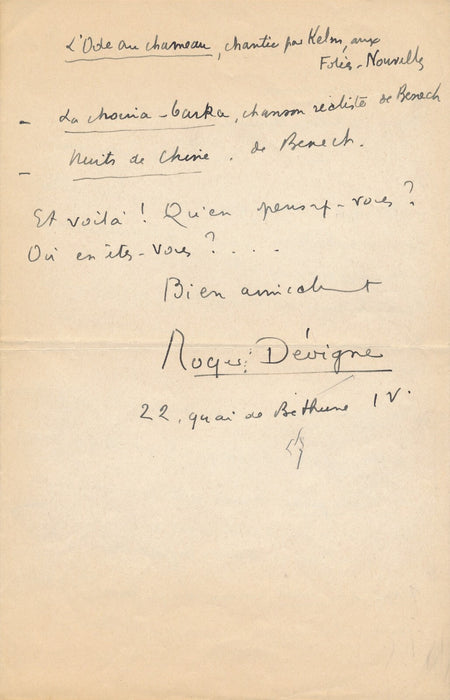 L'Ode au chameau, chantée par Kelm, aux
Folies-Nouvelles
- La chouia-barka, chanson réaliste de Benech
- Nuits de Chine. de Benech.
Et voilà ! Qu'en pensez-vous ?
Où en êtes-vous ? . . . .
Bien amicalement
Roger Dévigne
22, quai de Béthune IV.